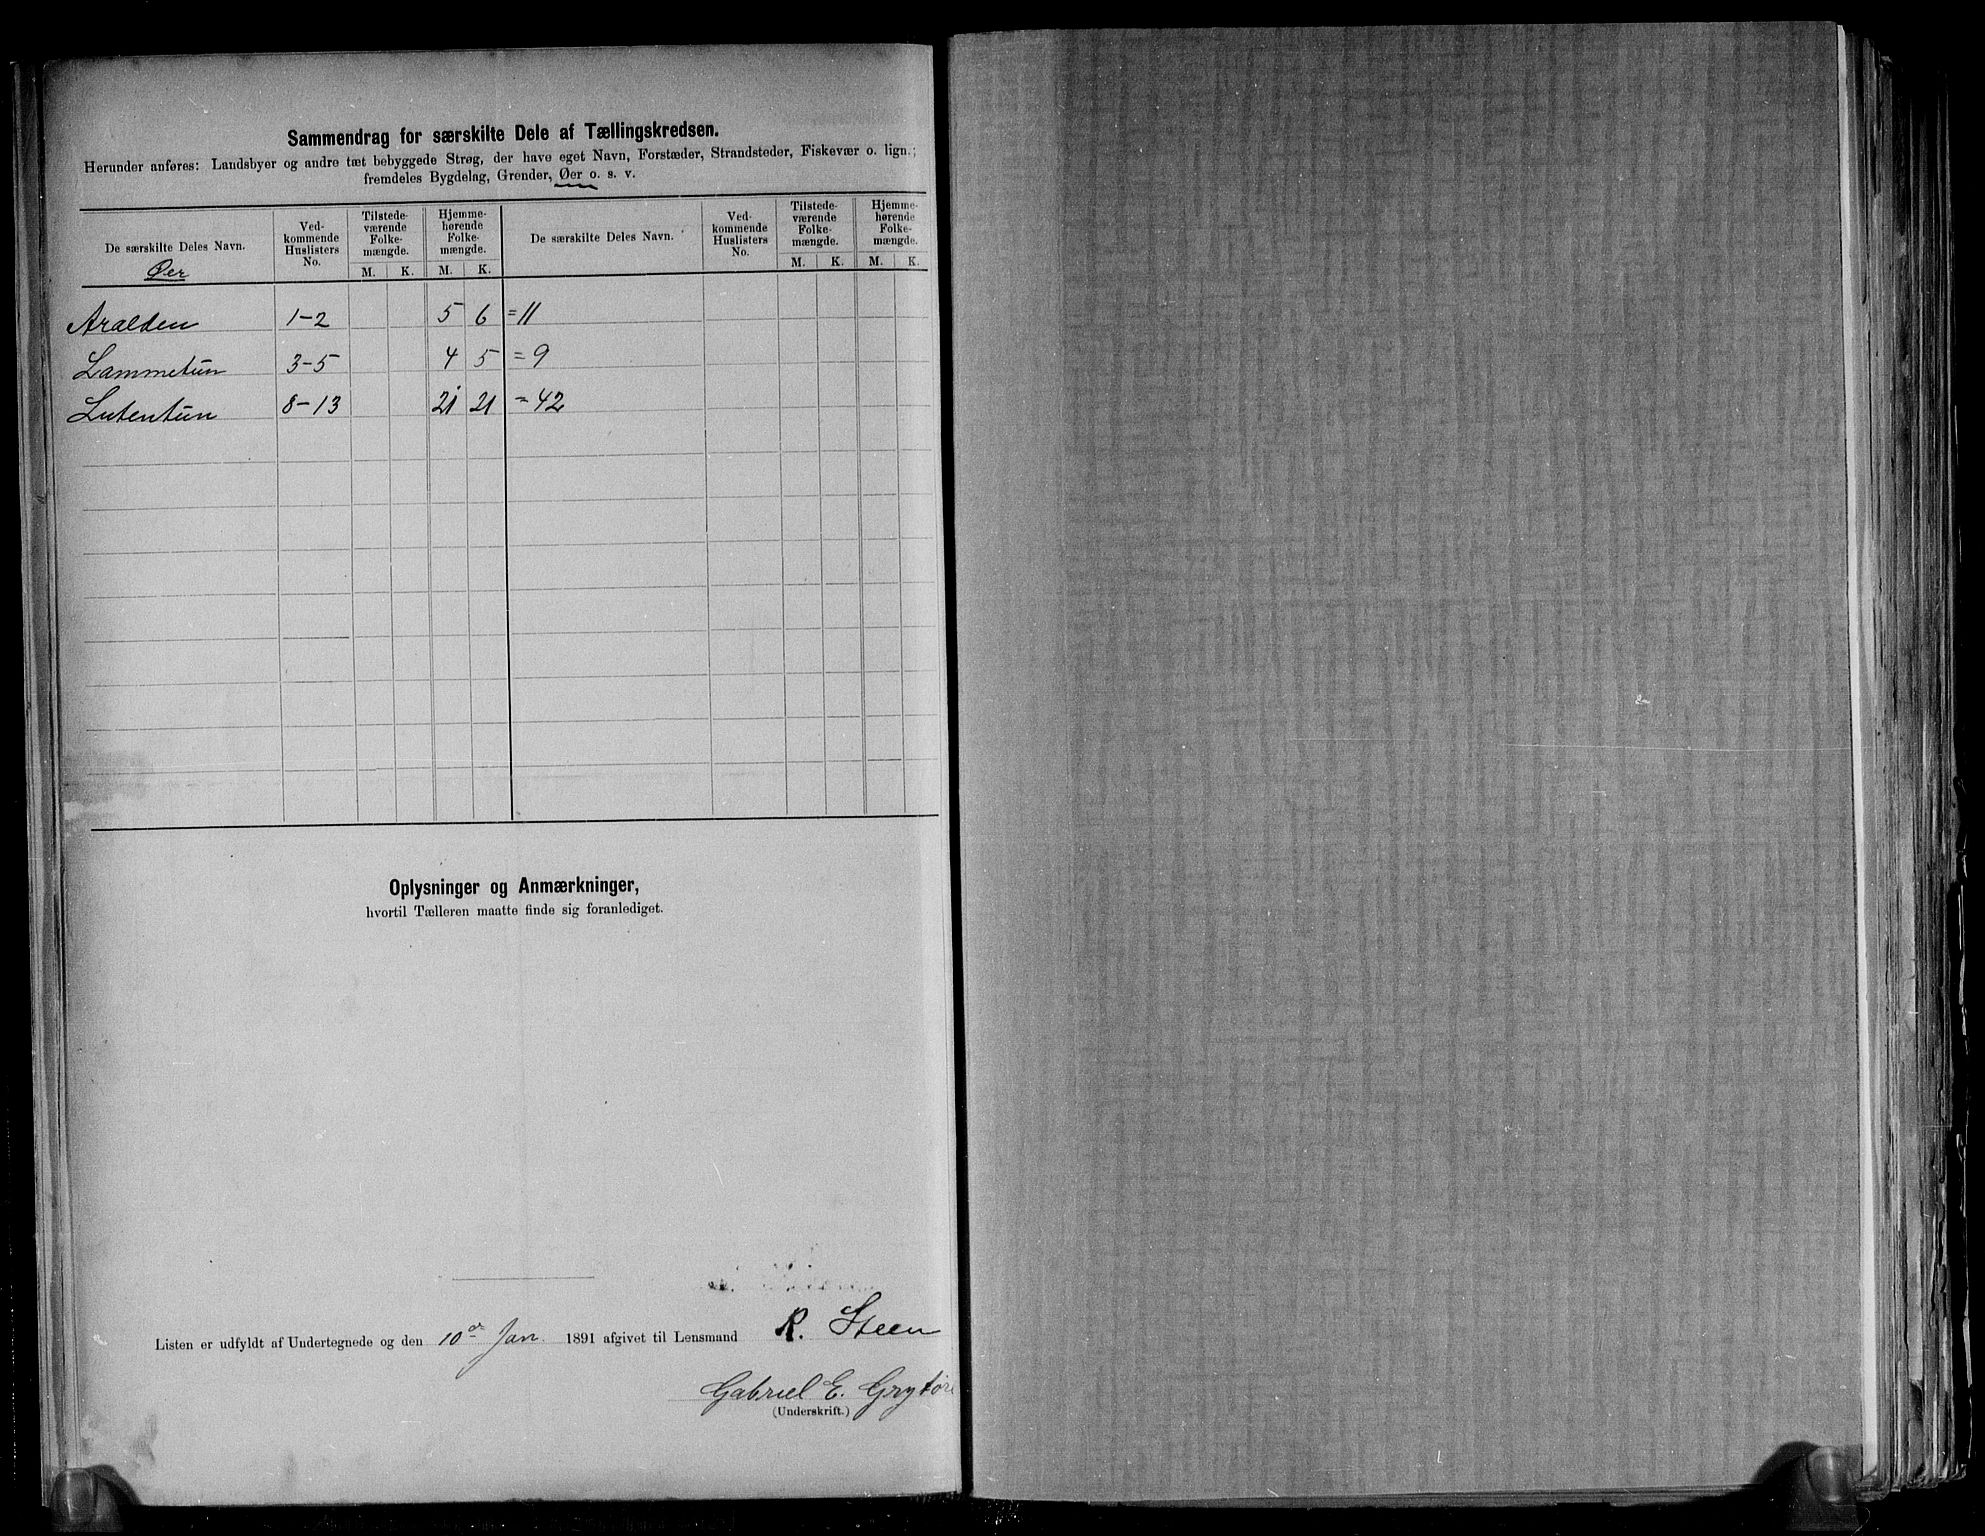 Sammendrag for særskilte Dele af Tællingskredsen.
Herunder anføres: Landsbyer og andre tæt bebyggede Strøg, der have eget Navn, Forstæder, Strandsteder, Fiskevær o. lign.;
fremdeles Bygdelag, Grender, Øer o. s. v.
De særskilte Deles Navn. Ved-kommende Huslisters No. Tilstede-værende Folke-mængde. Hjemme-hørende Folke-mængde. De særskilte Deles Navn. Ved-kommende Huslisters No. Tilstede-værende Folke-mængde. Hjemme-hørende Folke-mængde.
Øer M. K. M. K. M. K. M. K.
Aralden 1-2 5 6 =11
Lammetun 3-5 4 5 =9
Lutentun 8-13 21 21 =42
Oplysninger og Anmærkninger,
hvortil Tælleren maatte finde sig foranlediget.
Listen er udfyldt af Undertegnede og den 10de Jan. 1891 afgivet til Lensmand R. Steen
Gabriel E. Grytøre
(Underskrift.)